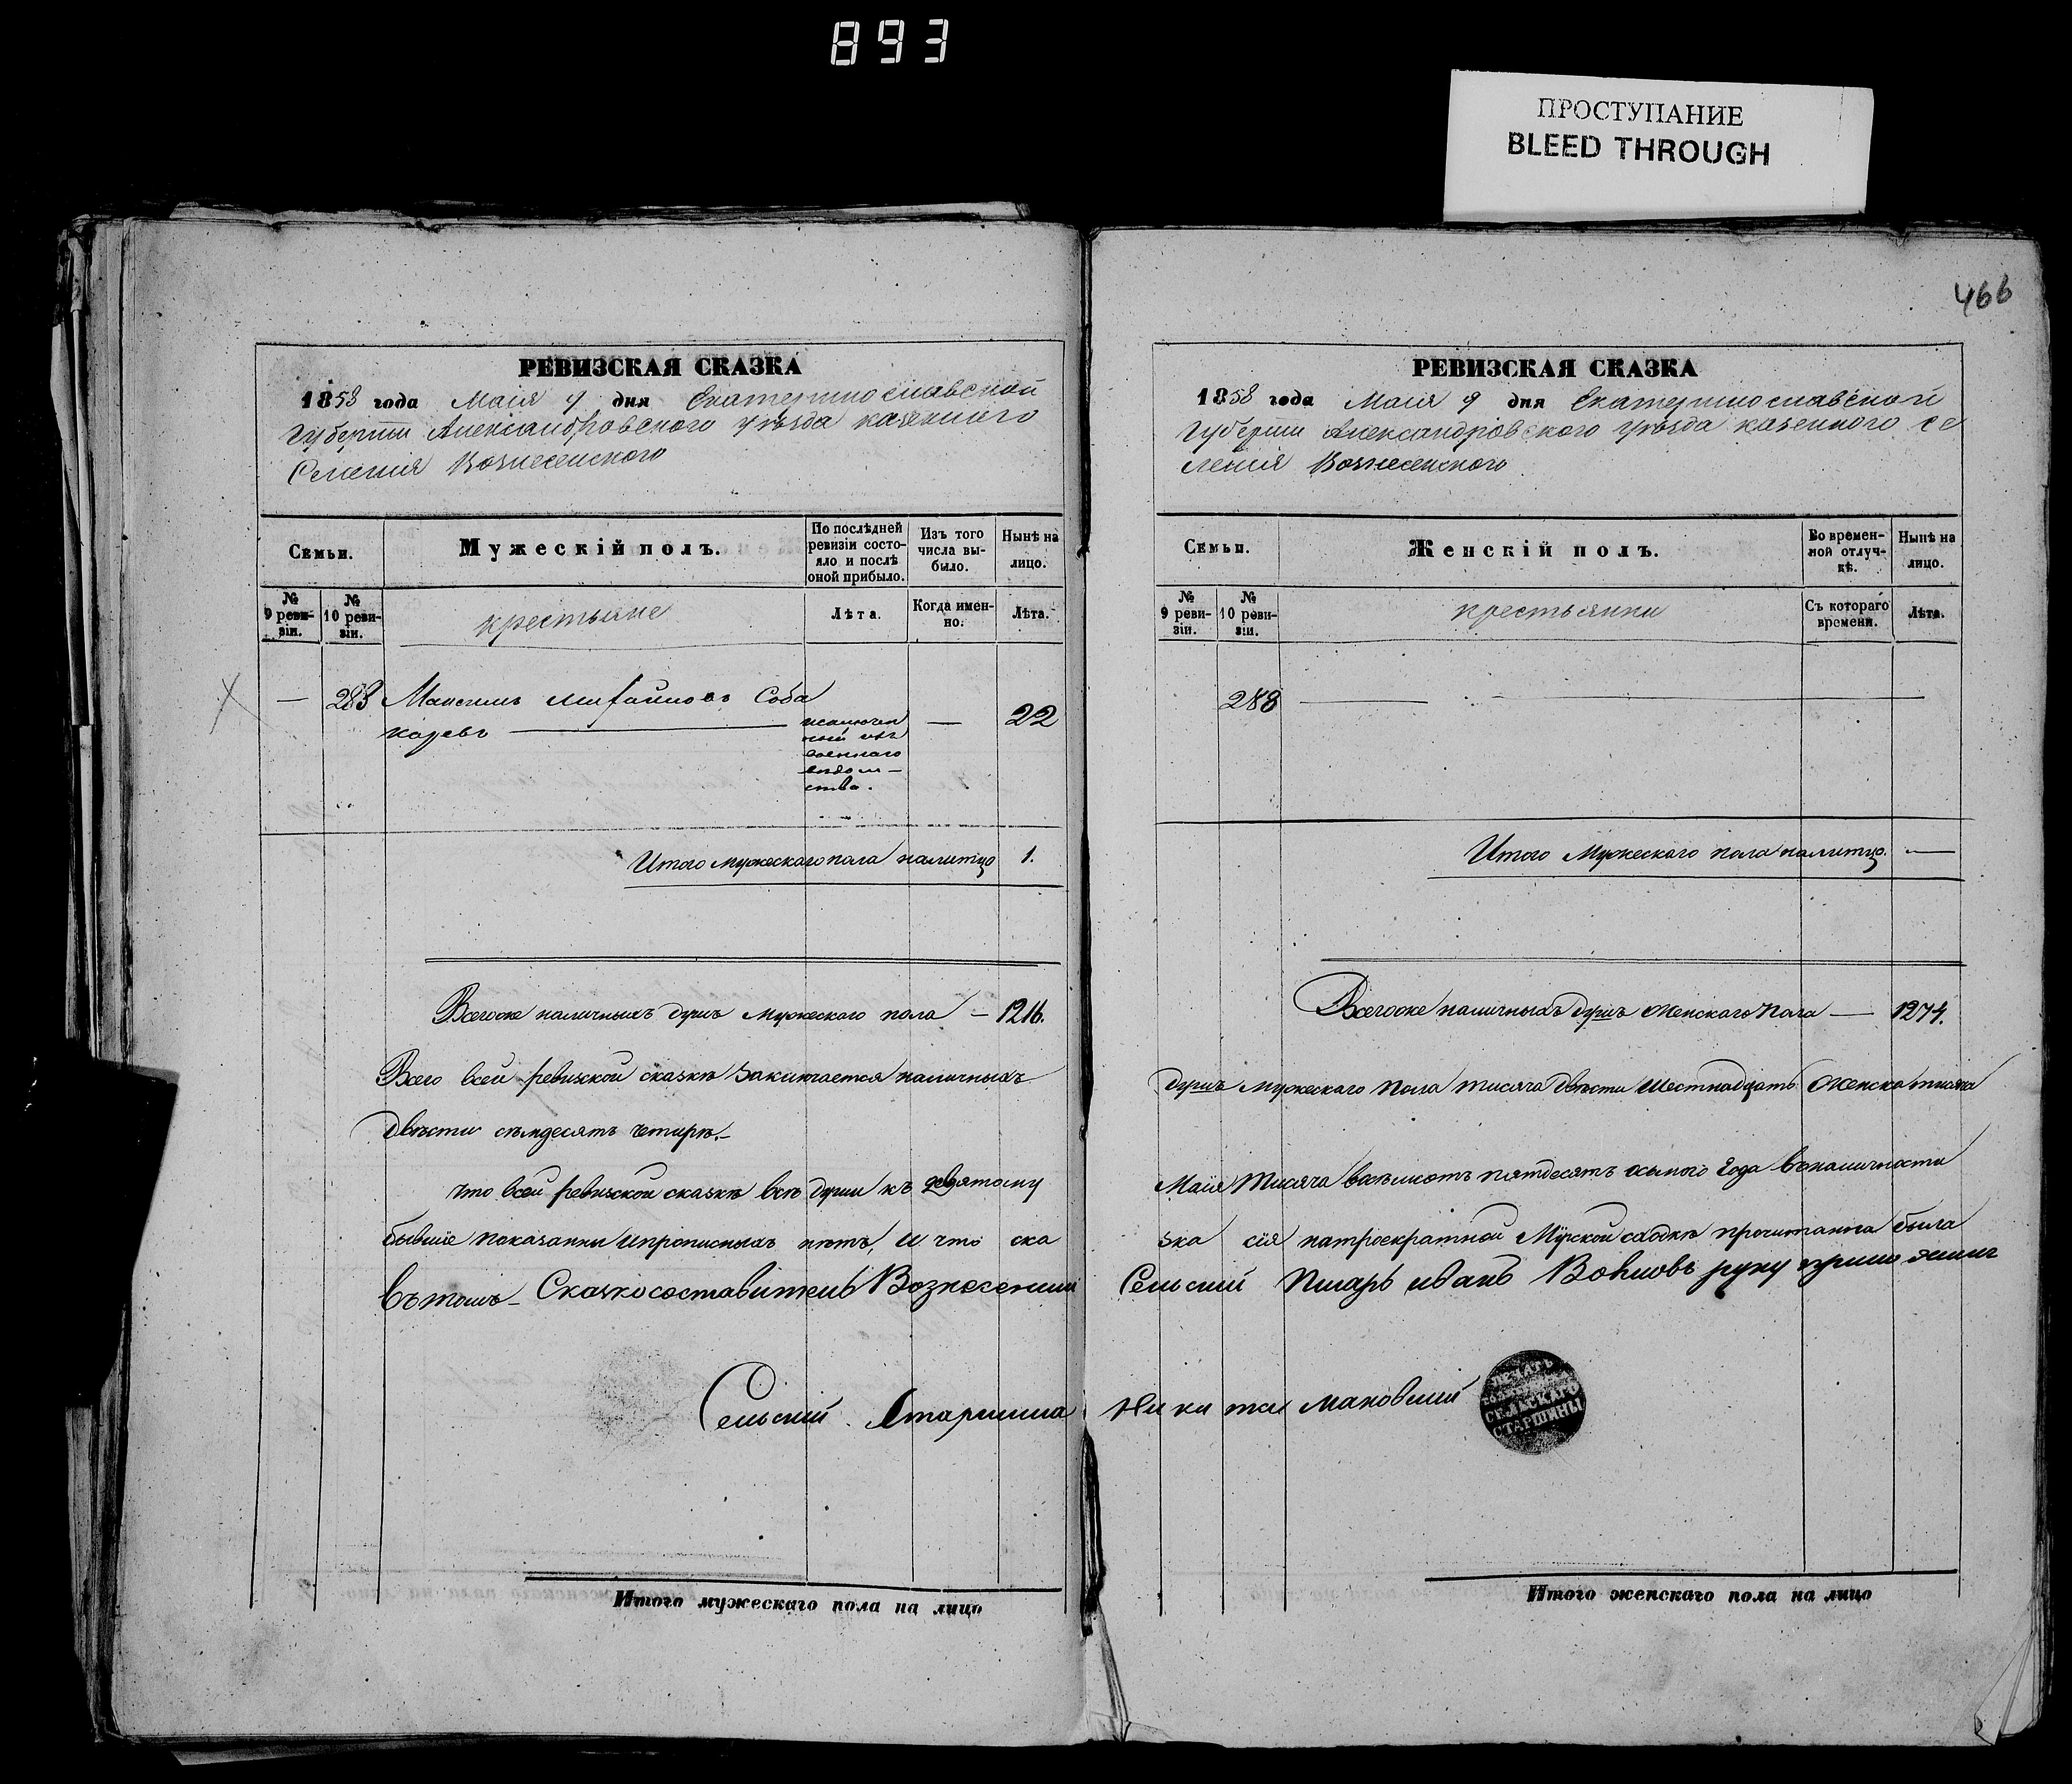 893
ПРОСТУПАНИЕ
BLEED THROUGH
466
РЕВИЗСКАЯ СКАЗКА
1858 года Маія 9 дня Екатеринославской
Губерніи Александровского уѣзда казенного
Селенія Вознесенского
Семьи.
Мужескій полъ.
По послѣдней ревизіи состояло и послѣ оной прибыло.
Изъ того числа выбыло.
Нынѣ на лицо.
№ 9 ревизіи.
№ 10 ревизіи.
крестьяне
Лѣта.
Когда именно.
Лѣта.
— 288 Максимъ Михайловъ Соба
каревъ — — 22
исключен
ный изъ
военнаго
вѣдом—
ства.
Итого мужескаго пола налитцо 1.
Всегоже наличныхъ душъ мужескаго пола — 1216.
Всего всей ревизской сказкѣ заключается наличныхъ
двѣсти семдесятъ четырѣ.—
что всей ревизской сказкѣ всѣ души къ девятому
бывшіе показанны ипрописныхъ нѣтъ, и что ска
Въ томъ — Сказкосоставитель Вознесенскій
Сельскій Старшина
Итого мужескаго пола на лицо
РЕВИЗСКАЯ СКАЗКА
1858 года Маія 9 дня Екатеринославской
Губерніи Александровского уѣзда казенного се
ленія Вознесенского
Семьи.
Женскій полъ.
Во временной отлучкѣ.
Нынѣ на лицо.
№ 9 ревизіи.
№ 10 ревизіи.
крестьянки
Съ котораго времени.
Лѣта.
288 — —
Итого Мужеского пола налитцо. —
Всегоже наличныхъ душъ Женскаго Пола — 1274.
душъ мужескаго пола тисяча двѣсти шестнадцать Женска тисяча
Маія Тисяча восѣмсотъ пятдесятъ осьмого года вѣналичности
зка сія натроекратной Мірской сходкѣ прочитанна была
Сельскій Писарь иванъ руку приложилъ
Никита маковскій
ПЕЧАТЬ
СЕЛЬСКАГО
СТАРШИНЫ
Итого женскаго пола на лицо